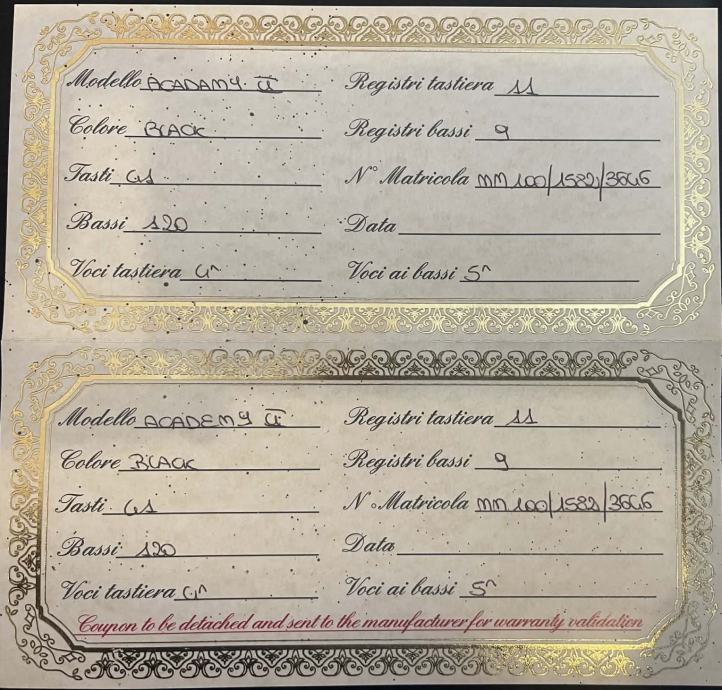 Modello ACADAMY II Registri tastiera 11
Colore BLACK Registri bassi 9
Tasti 41 N° Matricola MM 100/1582/3646
Bassi 120 Data
Voci tastiera 4^ Voci ai bassi 5^
Modello ACADEMY II Registri tastiera 11
Colore BLACK Registri bassi 9
Tasti 41 N° Matricola MM 100/1582/3646
Bassi 120 Data
Voci tastiera 4^ Voci ai bassi 5^
Coupon to be detached and sent to the manufacturer for warranty validation